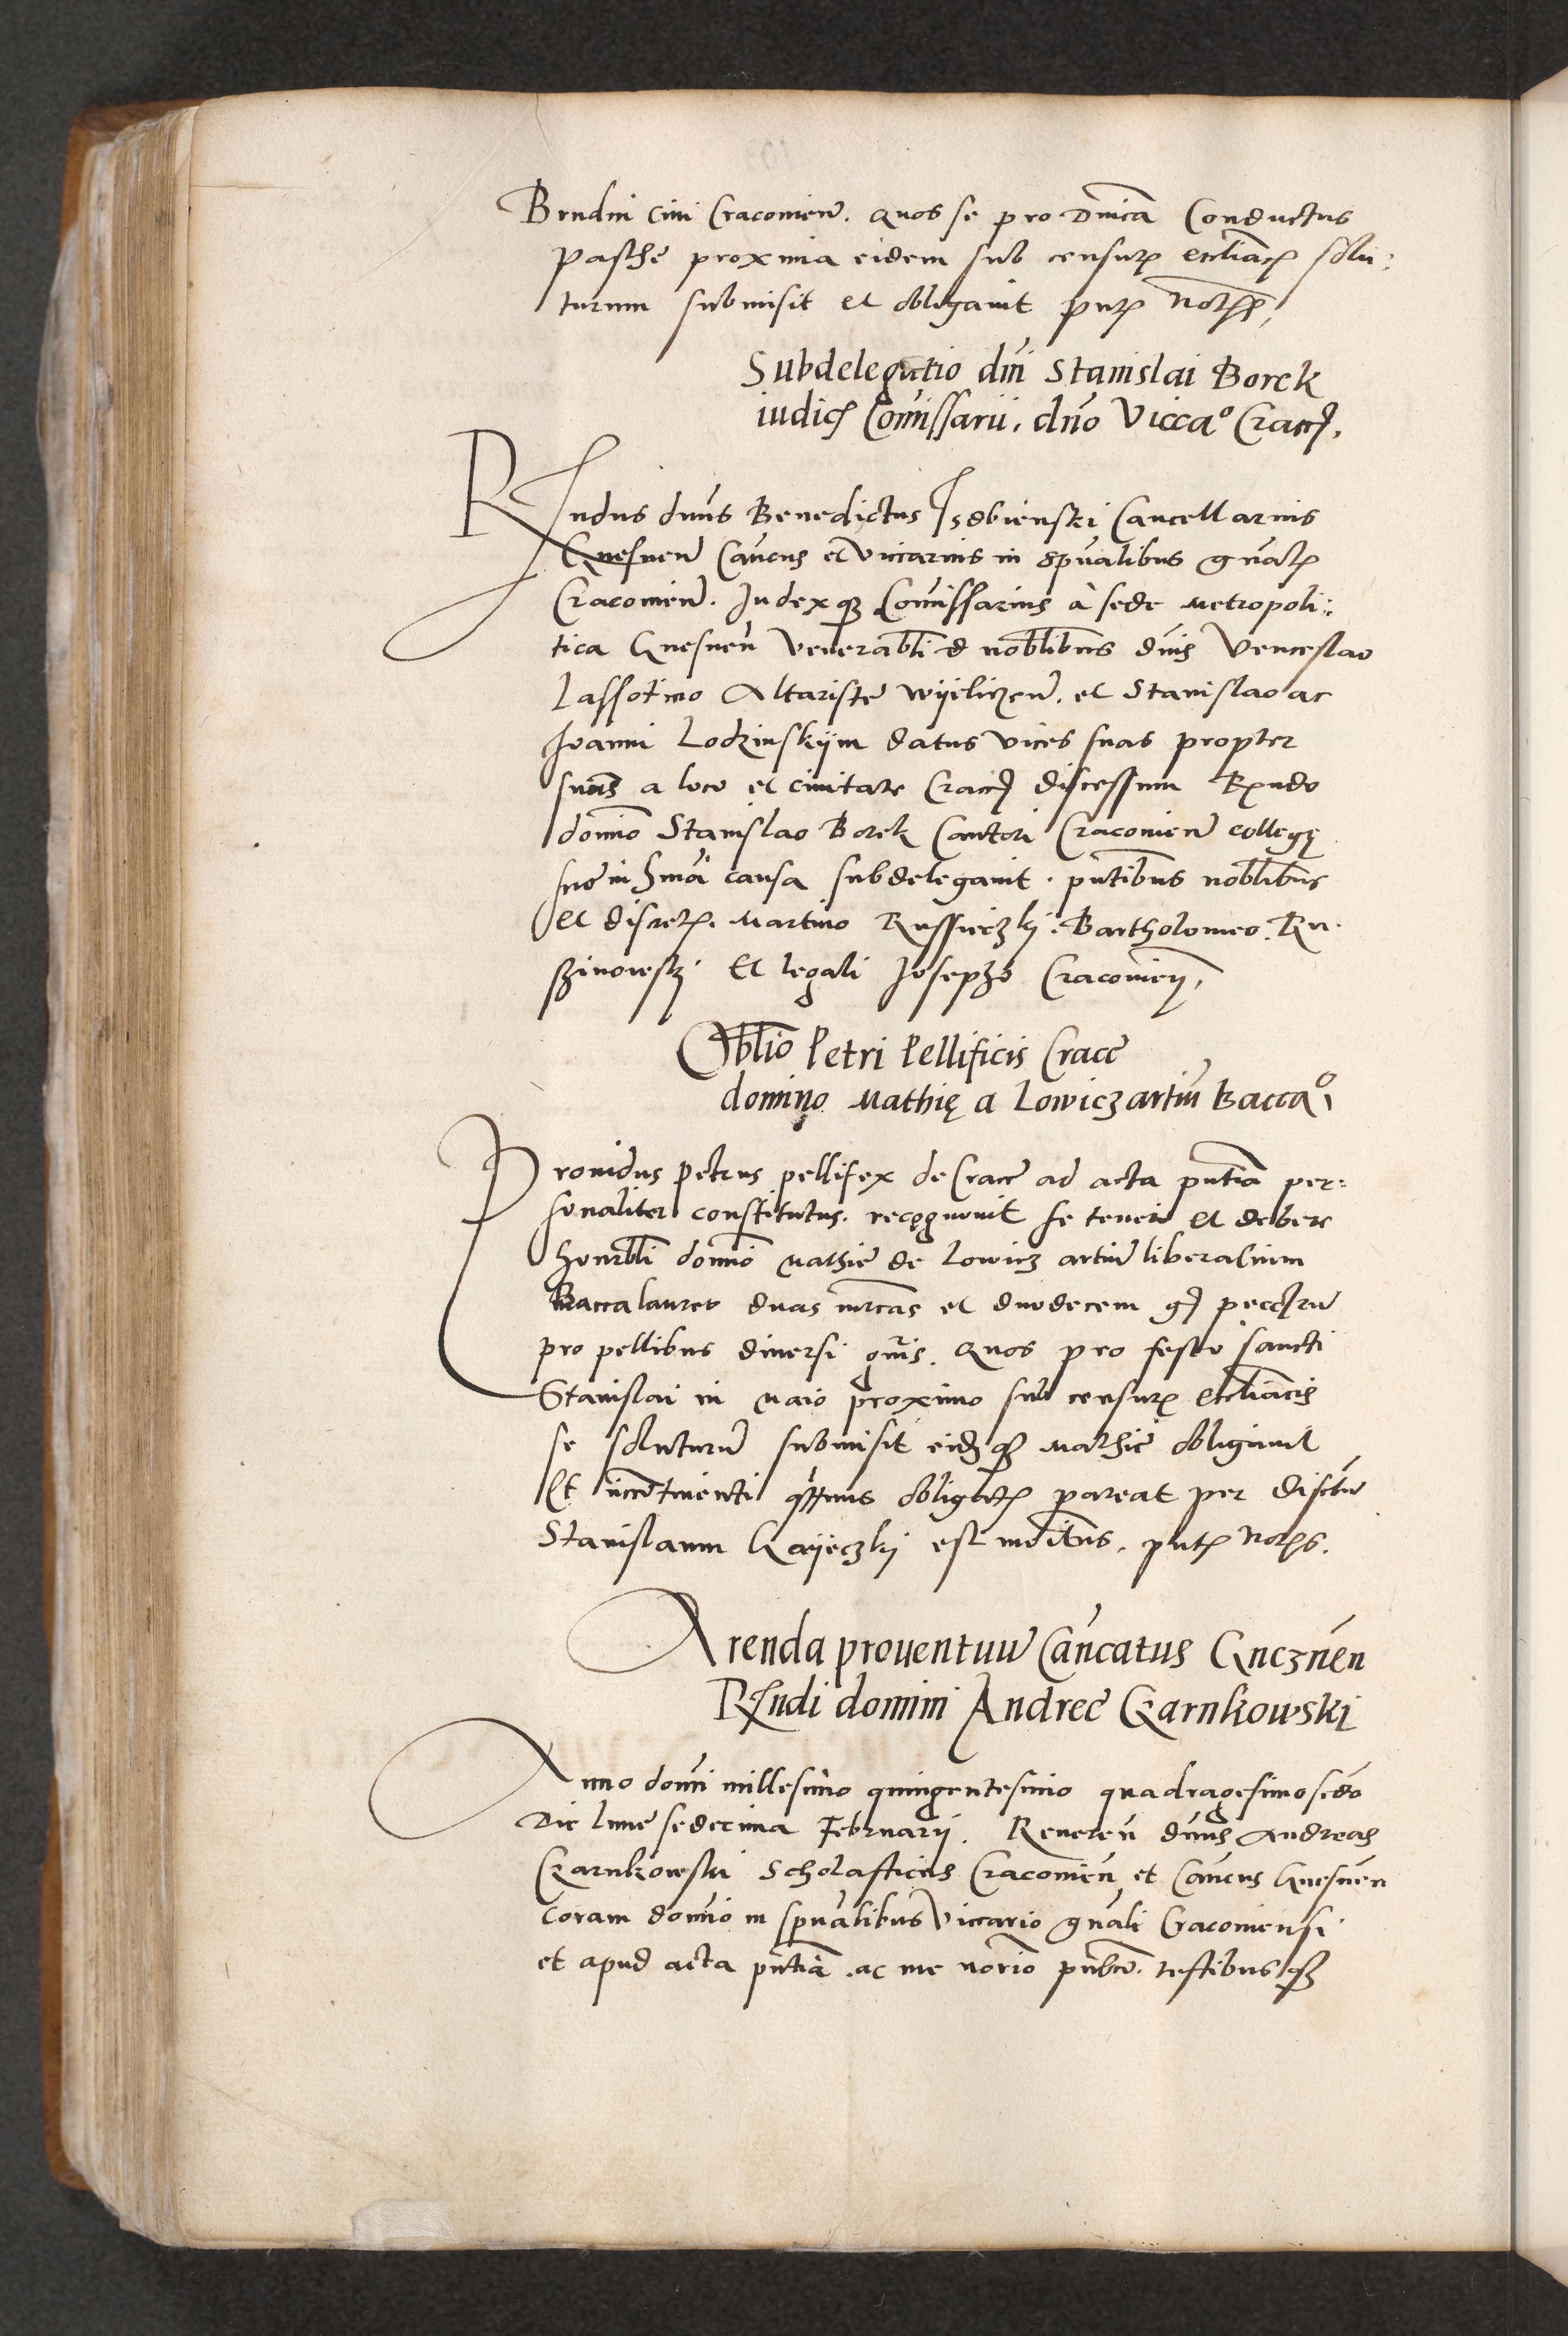 Brudni civi Cracovien̄. quos se pro Dn̄ica Conductus
Pasche proxima eidem sub censur̨ eccliac̨ solu:
turum submisit et obligavit pn̄t̨
Subdelegatio dn̄i Stanislai Borek
iudic̨ Com̄issarii. dn̄o Vicca° Crac̨.
Rn̄dus dn̄us Benedictus Isdbienski Cancellarius
Gnesnen̄ Can̄cus et Viccarius in spūalibus gn̄al̨
Cracovien̄. Iudexq̨ Com̄issarius à sede Metropoli:
tica Gnesnen̄ Venerabl̄i & nobl̄ibus dn̄is Venceslao
Lassotino Altariste Wyeliczen̄. et Stanislao ac
Joanni Lodzinskym datus vices suas propter
suum̄ a loco et civitate Crac̨ discessum Rn̄do
domīno Stanislao Borek Cantori Cracovien̄ collegę
suo in hm̄oi causa subdelegavit. pn̄tibus nobl̄ibus
et discret̨. Martino Russieczky. Bartholomeo. Ru
szinowsky et legali Josepho Cracovien̄,
Obl̄io Petri Pellificis Cracc̄
domino Mathię a Lowicz artiū Bacca°,
Providus Petrus pellifex de Cracc̄ ad acta pn̄tia per=
sonaliter constitutus. recognovit se teneri et debere
honorbl̄i domīno Mathie de Lowicz artiū liberalium
Baccalaureo duas mr̄cas et duodecem g̨ pecc̨rū
pro pellibus diversi gn̄is. quos pro festo sancti
Stanislai in Maio proximo sub censur̨ eccliācis
se soluturū submisit eidq̨ Mathie obligavit
Et incn̄tinenti obligat̨ pareat per discrū
Stanislaum Gayeczky est mōitus. pn̄t̨ not̨s.
Arenda proventuū Can̄catus Gneznēn
Rn̄di domini Andree Czarnkowski
Anno domi̅ni millesimo quingentesimo quadragesimo scd̄o
Die lune sedecima Februarij. Reveren̄ dn̄us Andreas
Czarnkowski Scholasticus Cracovien̄ et Can̄cus Gnesnēn
Coram domi̅no in spūalibus Viccario gn̄ali Cracoviensi
et apud acta pn̄tia ac me notrio pubco. testibusq̨